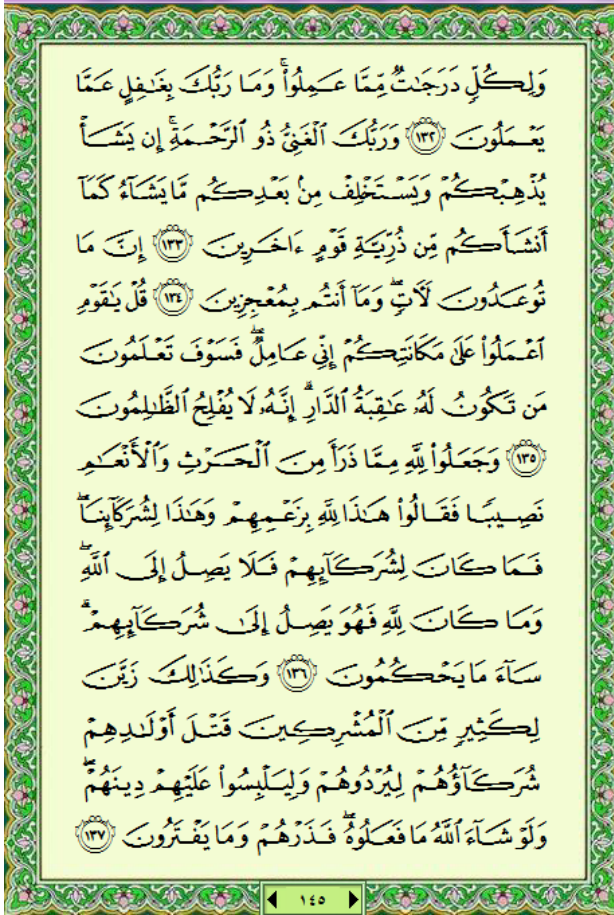 وَلِكُلٍّ دَرَجَٰتٌ مِّمَّا عَمِلُوا۟ ۚ وَمَا رَبُّكَ بِغَٰفِلٍ عَمَّا
يَعْمَلُونَ ﴿١٣٢﴾ وَرَبُّكَ ٱلْغَنِىُّ ذُو ٱلرَّحْمَةِ ۚ إِن يَشَأْ
يُذْهِبْكُمْ وَيَسْتَخْلِفْ مِنۢ بَعْدِكُم مَّا يَشَآءُ كَمَآ
أَنشَأَكُم مِّن ذُرِّيَّةِ قَوْمٍ ءَاخَرِينَ ﴿١٣٣﴾ إِنَّ مَا
تُوعَدُونَ لَءَاتٍ ۖ وَمَآ أَنتُم بِمُعْجِزِينَ ﴿١٣٤﴾ قُلْ يَٰقَوْمِ
ٱعْمَلُوا۟ عَلَىٰ مَكَانَتِكُمْ إِنِّى عَامِلٌ ۖ فَسَوْفَ تَعْلَمُونَ
مَن تَكُونُ لَهُۥ عَٰقِبَةُ ٱلدَّارِ ۗ إِنَّهُۥ لَا يُفْلِحُ ٱلظَّٰلِمُونَ
﴿١٣٥﴾ وَجَعَلُوا۟ لِلَّهِ مِمَّا ذَرَأَ مِنَ ٱلْحَرْثِ وَٱلْأَنْعَٰمِ
نَصِيبًا فَقَالُوا۟ هَٰذَا لِلَّهِ بِزَعْمِهِمْ وَهَٰذَا لِشُرَكَآئِنَا ۖ
فَمَا كَانَ لِشُرَكَآئِهِمْ فَلَا يَصِلُ إِلَى ٱللَّهِ ۖ
وَمَا كَانَ لِلَّهِ فَهُوَ يَصِلُ إِلَىٰ شُرَكَآئِهِمْ ۗ
سَآءَ مَا يَحْكُمُونَ ﴿١٣٦﴾ وَكَذَٰلِكَ زَيَّنَ
لِكَثِيرٍ مِّنَ ٱلْمُشْرِكِينَ قَتْلَ أَوْلَٰدِهِمْ
شُرَكَآؤُهُمْ لِيُرْدُوهُمْ وَلِيَلْبِسُوا۟ عَلَيْهِمْ دِينَهُمْ ۖ
وَلَوْ شَآءَ ٱللَّهُ مَا فَعَلُوهُ ۖ فَذَرْهُمْ وَمَا يَفْتَرُونَ ﴿١٣٧﴾
١٤٥